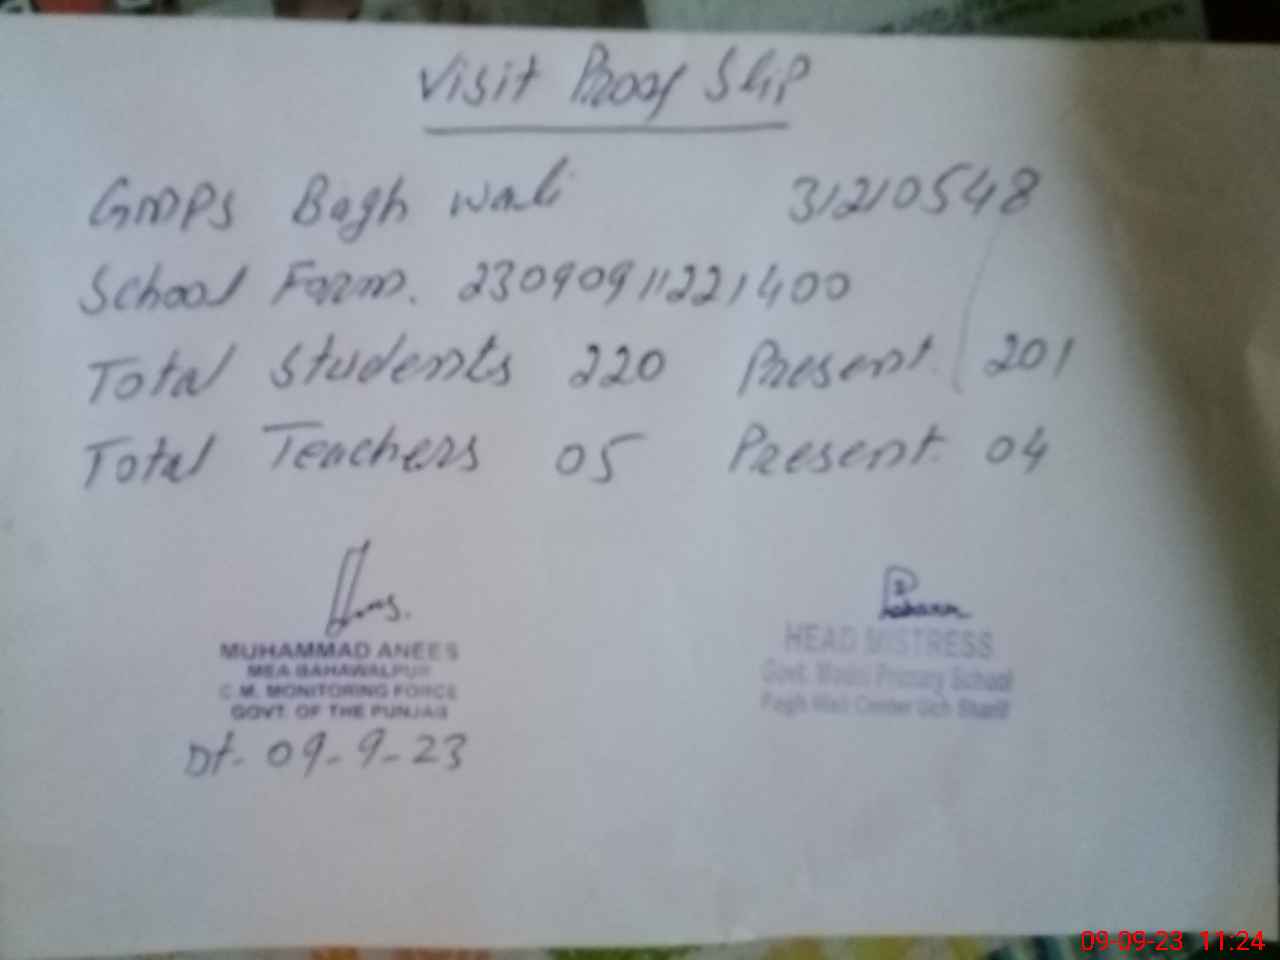 Visit Proof Slip
GMPS Bagh wali 31210548
School Farm. 23090911221400
Total Students 220 Present. 201
Total Teachers 05 Present. 04
MUHAMMAD ANEES
MEA BAHAWALPUR
C.M. MONITORING FORCE
GOVT. OF THE PUNJAB
Dt. 09-9-23
HEAD MISTRESS
Govt. Model Primary School
Bagh Wali Center Uch Sharif
09-09-23 11:24